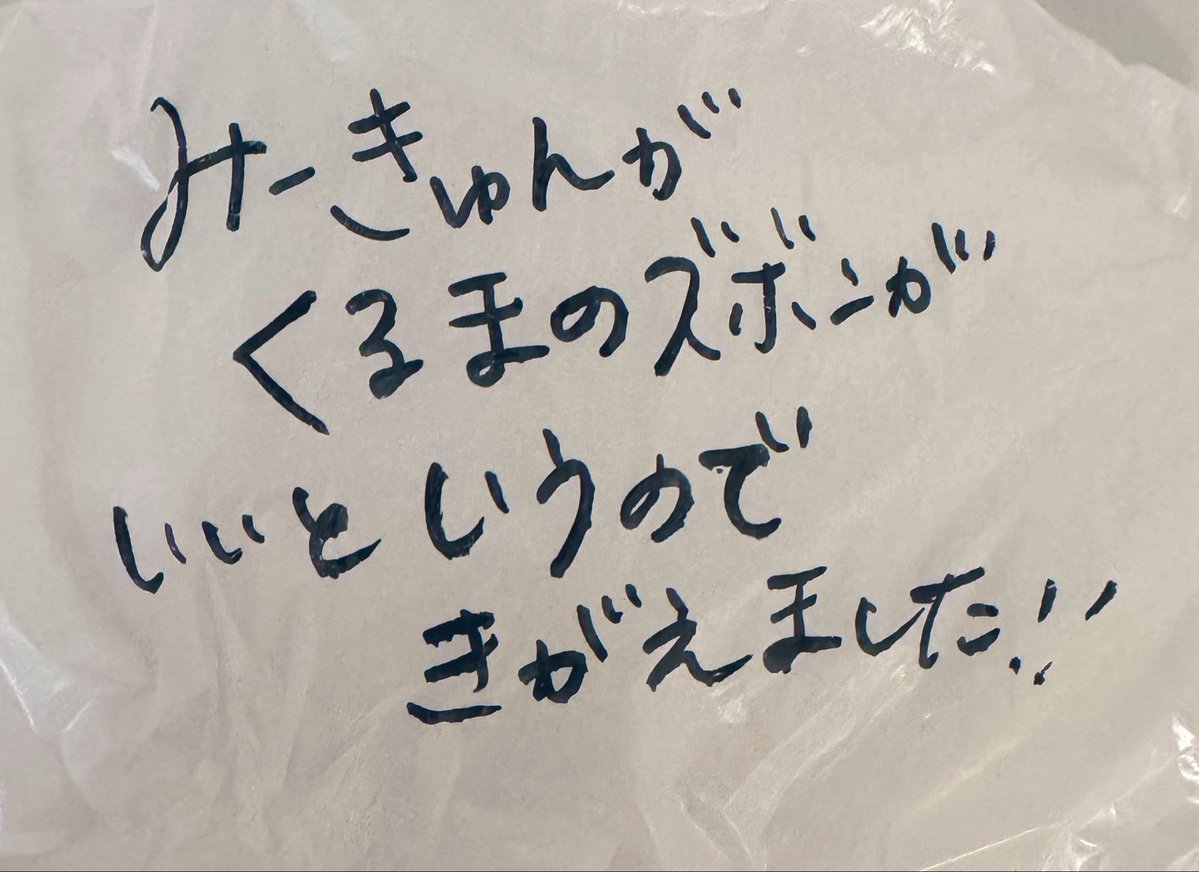 みーきゅんが
くるまのズボンが
いいというので
きがえました!!